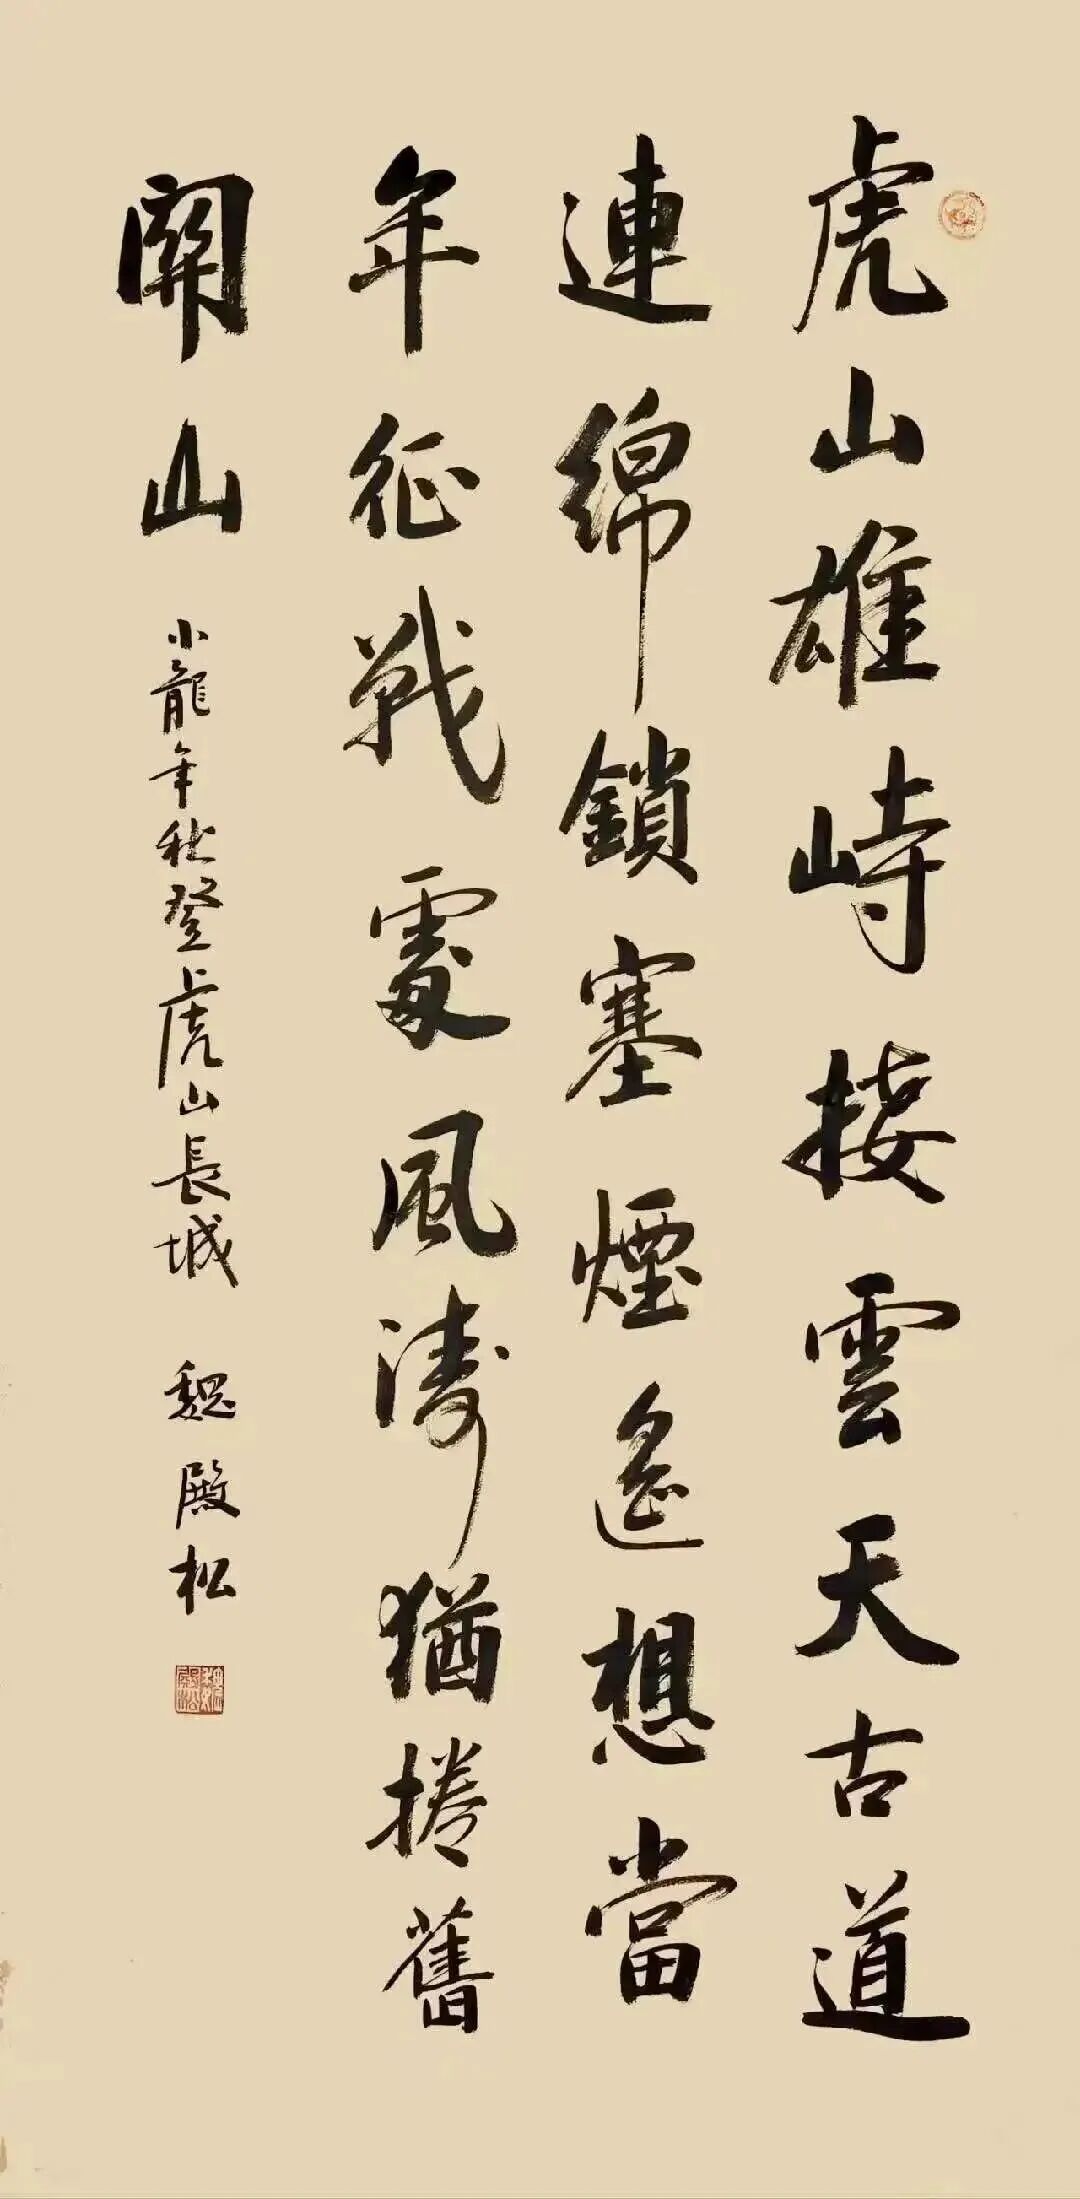 虎山雄峙接雲天古道
連綿鎖塞煙遙想當
年征戰處風濤猶捲舊
關山
小龍年秋登虎山長城 魏殿松
魏殿松